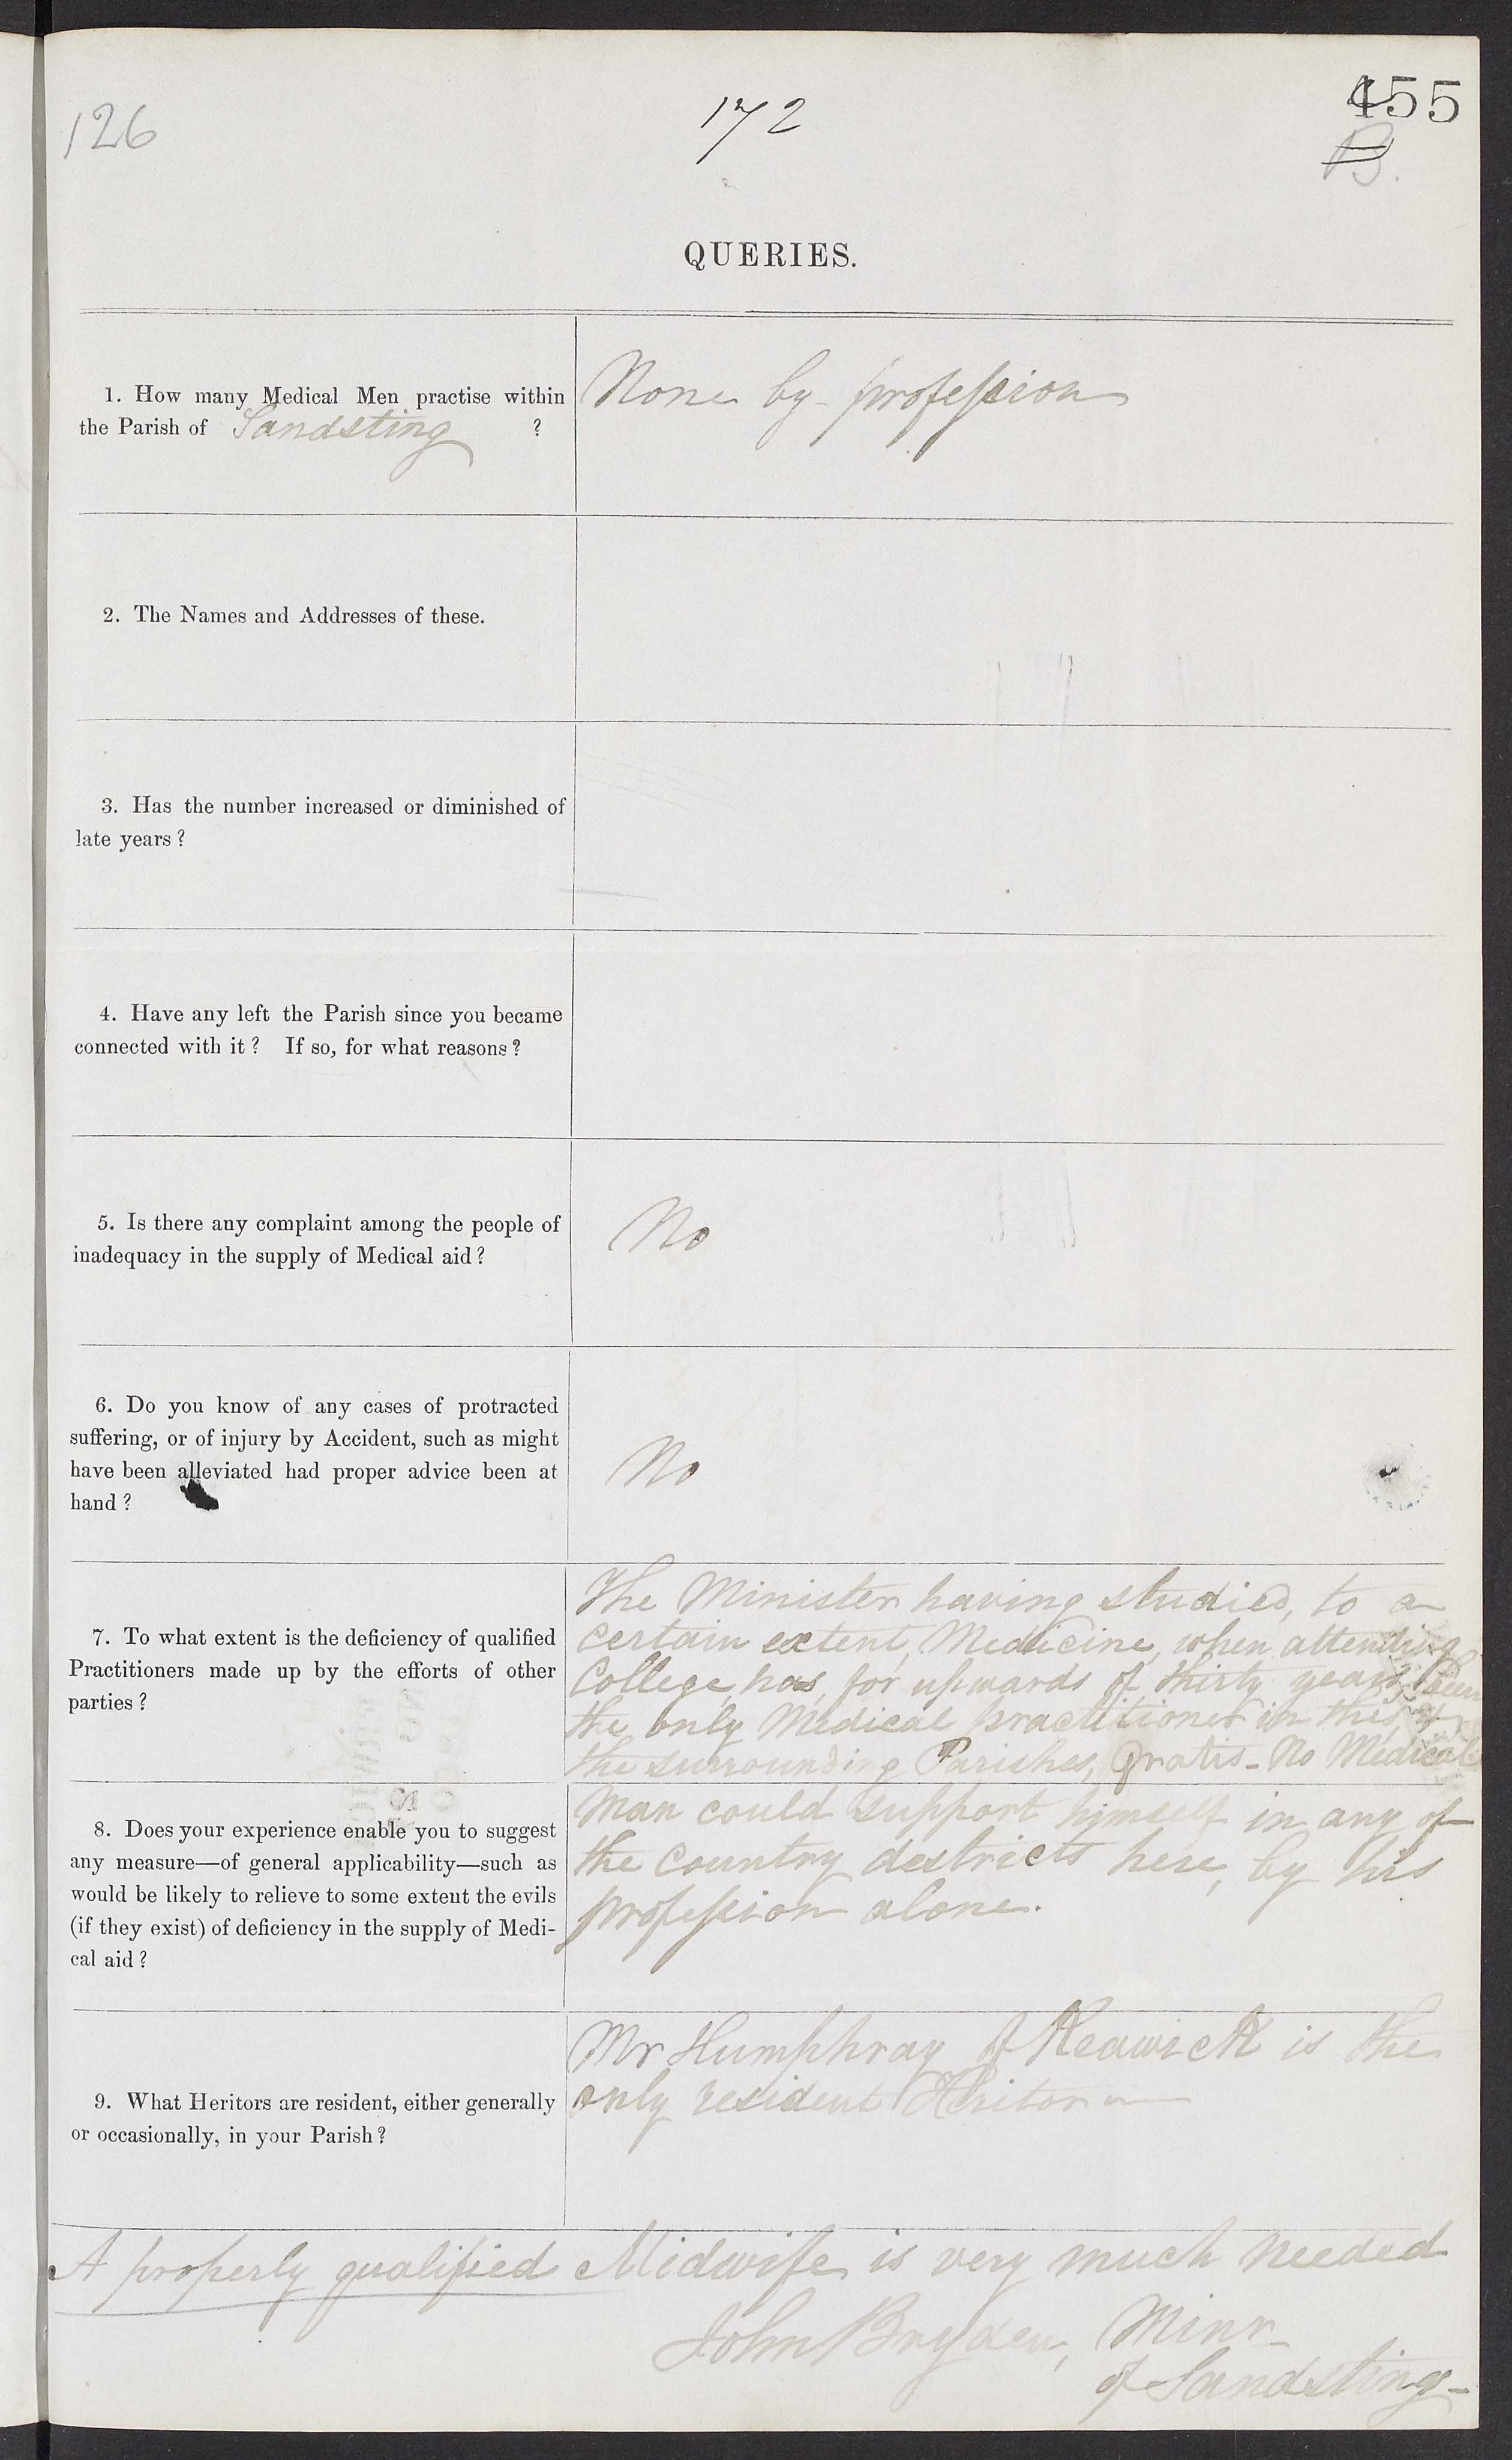 126
172
455
B.
QUERIES.
1. How many Medical Men practise within
the Parish of Sandsting ?
None by profession
2. The Names and Addresses of these.
3. Has the number increased or diminished of
late years ?
4. Have any left the Parish since you became
connected with it ? If so, for what reasons ?
5. Is there any complaint among the people of
inadequacy in the supply of Medical aid ?
No
6. Do you know of any cases of protracted
suffering, or of injury by Accident, such as might
have been alleviated had proper advice been at
hand ?
No
7. To what extent is the deficiency of qualified
Practitioners made up by the efforts of other
parties ?
The Minister having studied, to a
certain extent, Medicine, when attending
College, has, for upwards of thirty years, been
the only Medical practitioner in this,
the surrounding Parishes, Gratis - No Medical
8. Does your experience enable you to suggest
any measure—of general applicability—such as
would be likely to relieve to some extent the evils
(if they exist) of deficiency in the supply of Medi-
cal aid ?
Man could support himself in any of
the country destricts here, by his
profession alone.
9. What Heritors are resident, either generally
or occasionally, in your Parish ?
Mr Humphray of Reawick is the
only resident Heritor
A properly qualified Midwife is very much needed
John Bryden, Minr
of Sandsting -